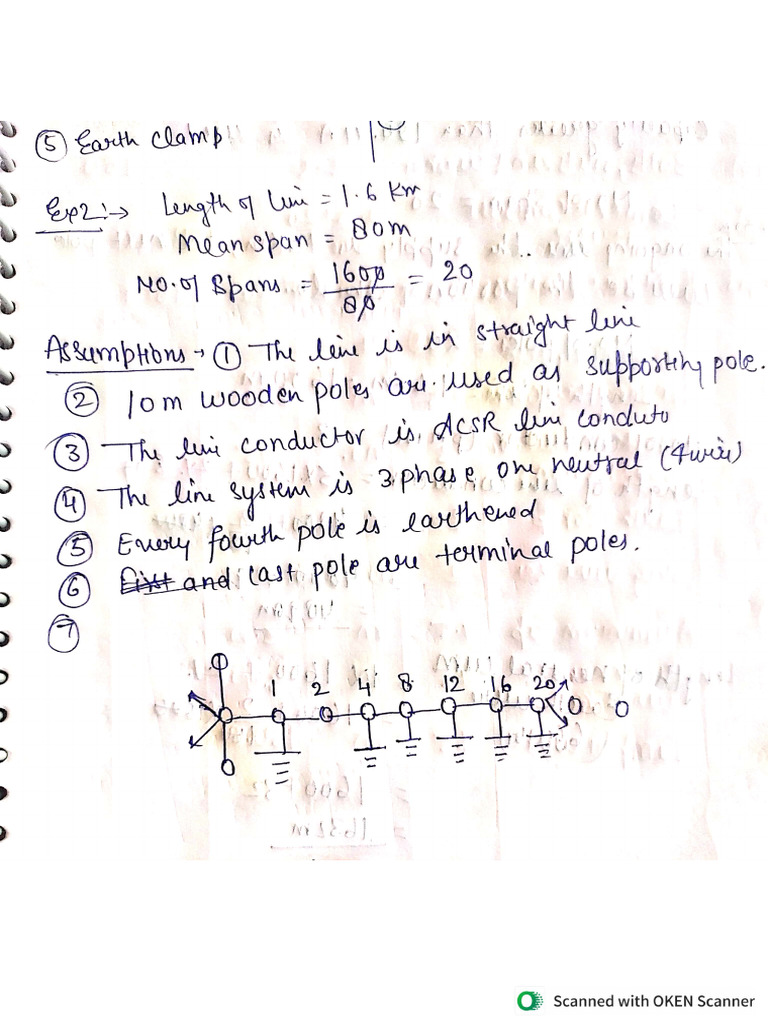 ⑤ Earth Clamp
Exp2:→ Length of line = 1.6 Km
Mean span = 80m
No. of Spans = 1600/80 = 20
Assumptions → ① The line is in straight line
② 10m wooden poles are used as supporting pole.
③ The line conductor is ACSR line conducto
④ The line system is 3 phase one neutral (4 wire)
⑤ Every fourth pole is earthened
⑥ First and last pole are terminal poles.
⑦
1 2 4 8 12 16 20
Scanned with OKEN Scanner